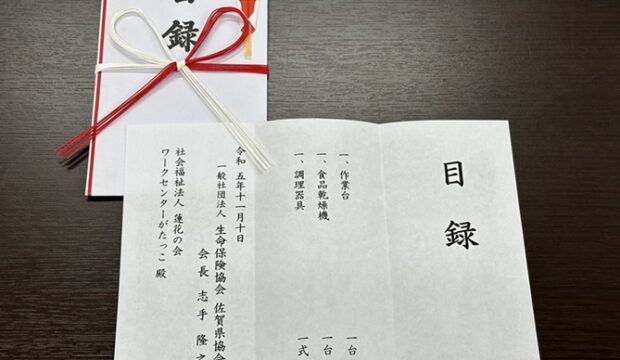 目録
目録
一、作業台 一台
一、食品乾燥機 一台
一、調理器具 一式
令和 五年十一月十日
一般社団法人 生命保険協会 佐賀県協会
会長 志手 隆之
社会福祉法人 蓮花の会
ワークセンターがたっこ 殿